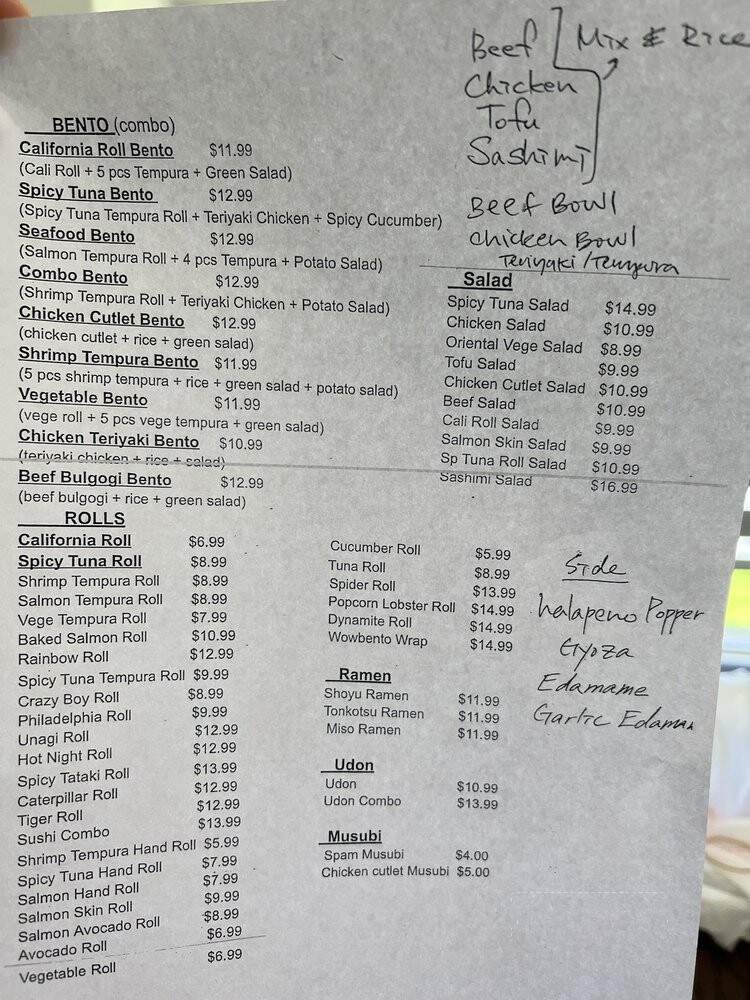 Beef
Mix & Rice
Chicken
Tofu
Sashimi
Beef Bowl
Chicken Bowl
Teriyaki / Tempura
BENTO (combo)
California Roll Bento $11.99
(Cali Roll + 5 pcs Tempura + Green Salad)
Spicy Tuna Bento $12.99
(Spicy Tuna Tempura Roll + Teriyaki Chicken + Spicy Cucumber)
Seafood Bento $12.99
(Salmon Tempura Roll + 4 pcs Tempura + Potato Salad)
Combo Bento $12.99
(Shrimp Tempura Roll + Teriyaki Chicken + Potato Salad)
Chicken Cutlet Bento $12.99
(chicken cutlet + rice + green salad)
Shrimp Tempura Bento $11.99
(5 pcs shrimp tempura + rice + green salad + potato salad)
Vegetable Bento $11.99
(vege roll + 5 pcs vege tempura + green salad)
Chicken Teriyaki Bento $10.99
(teriyaki chicken + rice + salad)
Beef Bulgogi Bento $12.99
(beef bulgogi + rice + green salad)
Salad
Spicy Tuna Salad $14.99
Chicken Salad $10.99
Oriental Vege Salad $8.99
Tofu Salad $9.99
Chicken Cutlet Salad $10.99
Beef Salad $10.99
Cali Roll Salad $9.99
Salmon Skin Salad $9.99
Sp Tuna Roll Salad $10.99
Sashimi Salad $16.99
ROLLS
California Roll $6.99
Spicy Tuna Roll $8.99
Shrimp Tempura Roll $8.99
Salmon Tempura Roll $8.99
Vege Tempura Roll $7.99
Baked Salmon Roll $10.99
Rainbow Roll $12.99
Spicy Tuna Tempura Roll $9.99
Crazy Boy Roll $8.99
Philadelphia Roll $9.99
Unagi Roll $12.99
Hot Night Roll $12.99
Spicy Tataki Roll $13.99
Caterpillar Roll $12.99
Tiger Roll $12.99
Sushi Combo $13.99
Shrimp Tempura Hand Roll $5.99
Spicy Tuna Hand Roll $7.99
Salmon Hand Roll $7.99
Salmon Skin Roll $9.99
Salmon Avocado Roll $8.99
Avocado Roll $6.99
Vegetable Roll $6.99
Cucumber Roll $5.99
Tuna Roll $8.99
Spider Roll $13.99
Popcorn Lobster Roll $14.99
Dynamite Roll $14.99
Wowbento Wrap $14.99
Ramen
Shoyu Ramen $11.99
Tonkotsu Ramen $11.99
Miso Ramen $11.99
Udon
Udon $10.99
Udon Combo $13.99
Musubi
Spam Musubi $4.00
Chicken cutlet Musubi $5.00
Side
halapeno Popper
Gyoza
Edamame
Garlic Edamam